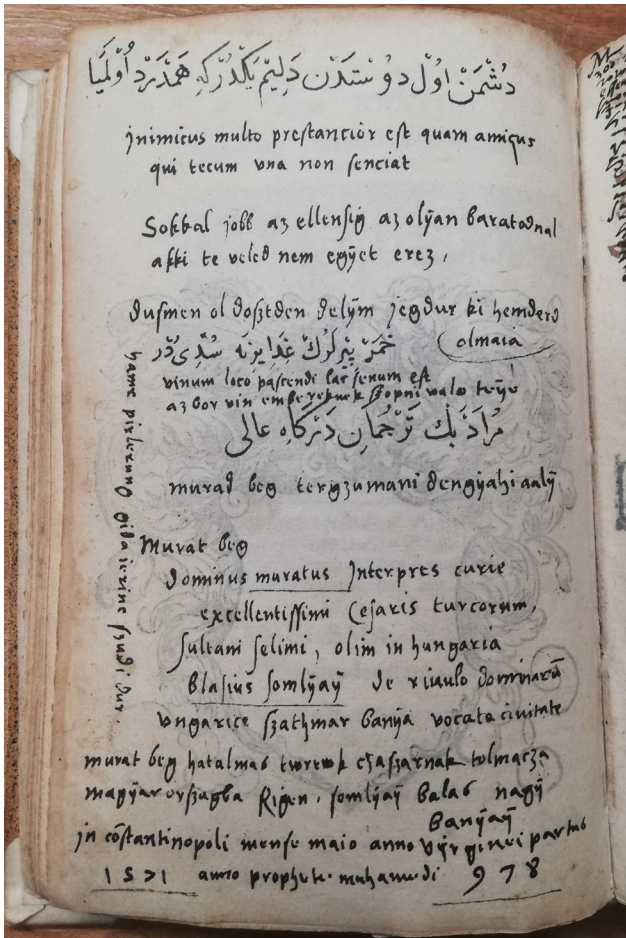 دُشْمَنْ اوُلْ دوُسْتَدَنْ دَلِيمْ يَكْدُرْكِهِ هَمْدَرْدْ اُوْلْمَيَا
Inimicus multo prestancior est quam amicus
qui tecum vna non senciat
Sokkal jobb az ellensig az olÿan baratodnal
akki te veled nem egÿet erez,
dusmen ol dosztden delÿm jegdur ki hemderd
olmaia
خَمْرْ پِيرْلَرُكْ غِدَا يِرِنَه سُدِى دُرْ
vinum loco pascendi lac senum est
az bor vin
مُرَادْ بَكْ تَرْجُمَانِ دَرْكَاهِ عالى
murad beg tergzumani dengÿahi aalÿ
hamr pirlerung gida ierine szudi dur.
Murat beg
dominus muratus Interpres curie
excellentissimi Cesaris turcorum,
sultani selimi, olim in hungaria
blasius somlÿaÿ de riuulo dominarū
vngarice szathmar banÿa vocata ciuitate
murat beg hatalmas twrewk czaszarnak tolmacza
magÿar orszagba Rigen, somlÿaÿ balas nagÿ
banÿaÿ
in cōstantinopoli mense maio anno vÿrginei partus
1571 anno prophete muhamedi 978